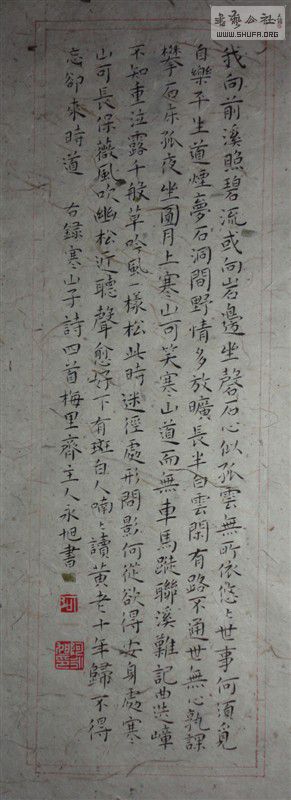 書藝公社
WWW.SHUFA.ORG
我向前溪照碧流或向岩邊坐磐石心似孤雲無所依悠〻世事何須覓
自樂平生道煙夢石洞間野情多放曠長半白雲閑有路不通世無心孰課
攀石床孤夜坐圓月上寒山可笑寒山道而無車馬蹤聯溪難記曲迭嶂
不知重泣露千般草吟風一樣松此時迷徑處形問影何從欲得安身處寒
山可長保薇風吹幽松近聽聲愈好下有斑白人喃〻讀黃老十年歸不得
忘卻來時道 右錄寒山子詩四首梅里齋主人永旭書